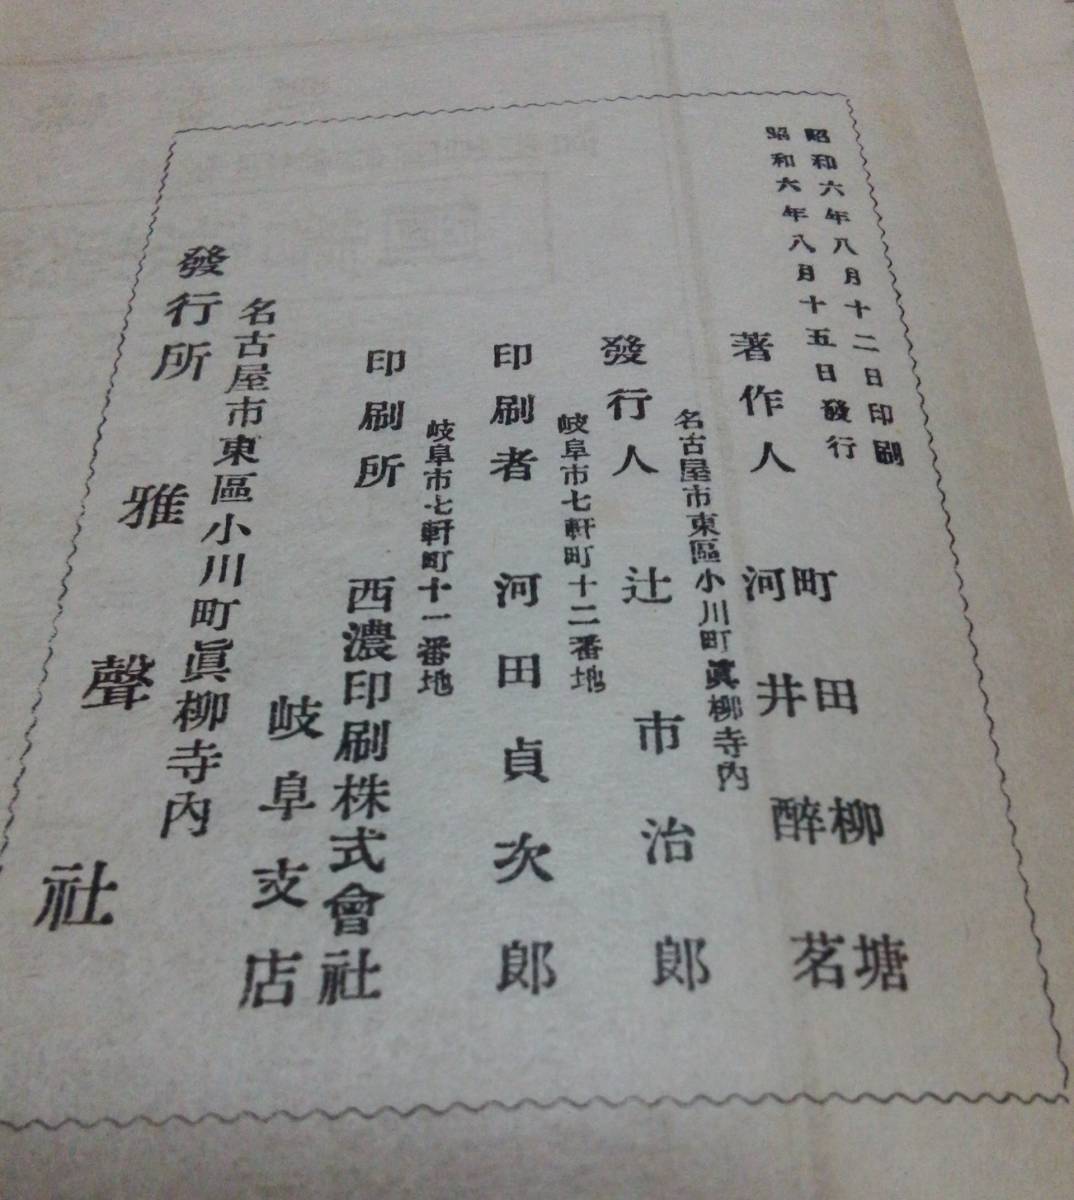 昭和六年八月十二日印刷
昭和六年八月十五日發行
著作人
町田柳塘
河井醉茗
名古屋市東區小川町眞柳寺內
發行人 辻市治郎
岐阜市七軒町十二番地
印刷者 河田貞次郎
岐阜市七軒町十一番地
印刷所 西濃印刷株式會社
岐阜支店
名古屋市東區小川町眞柳寺內
發行所 雅聲社